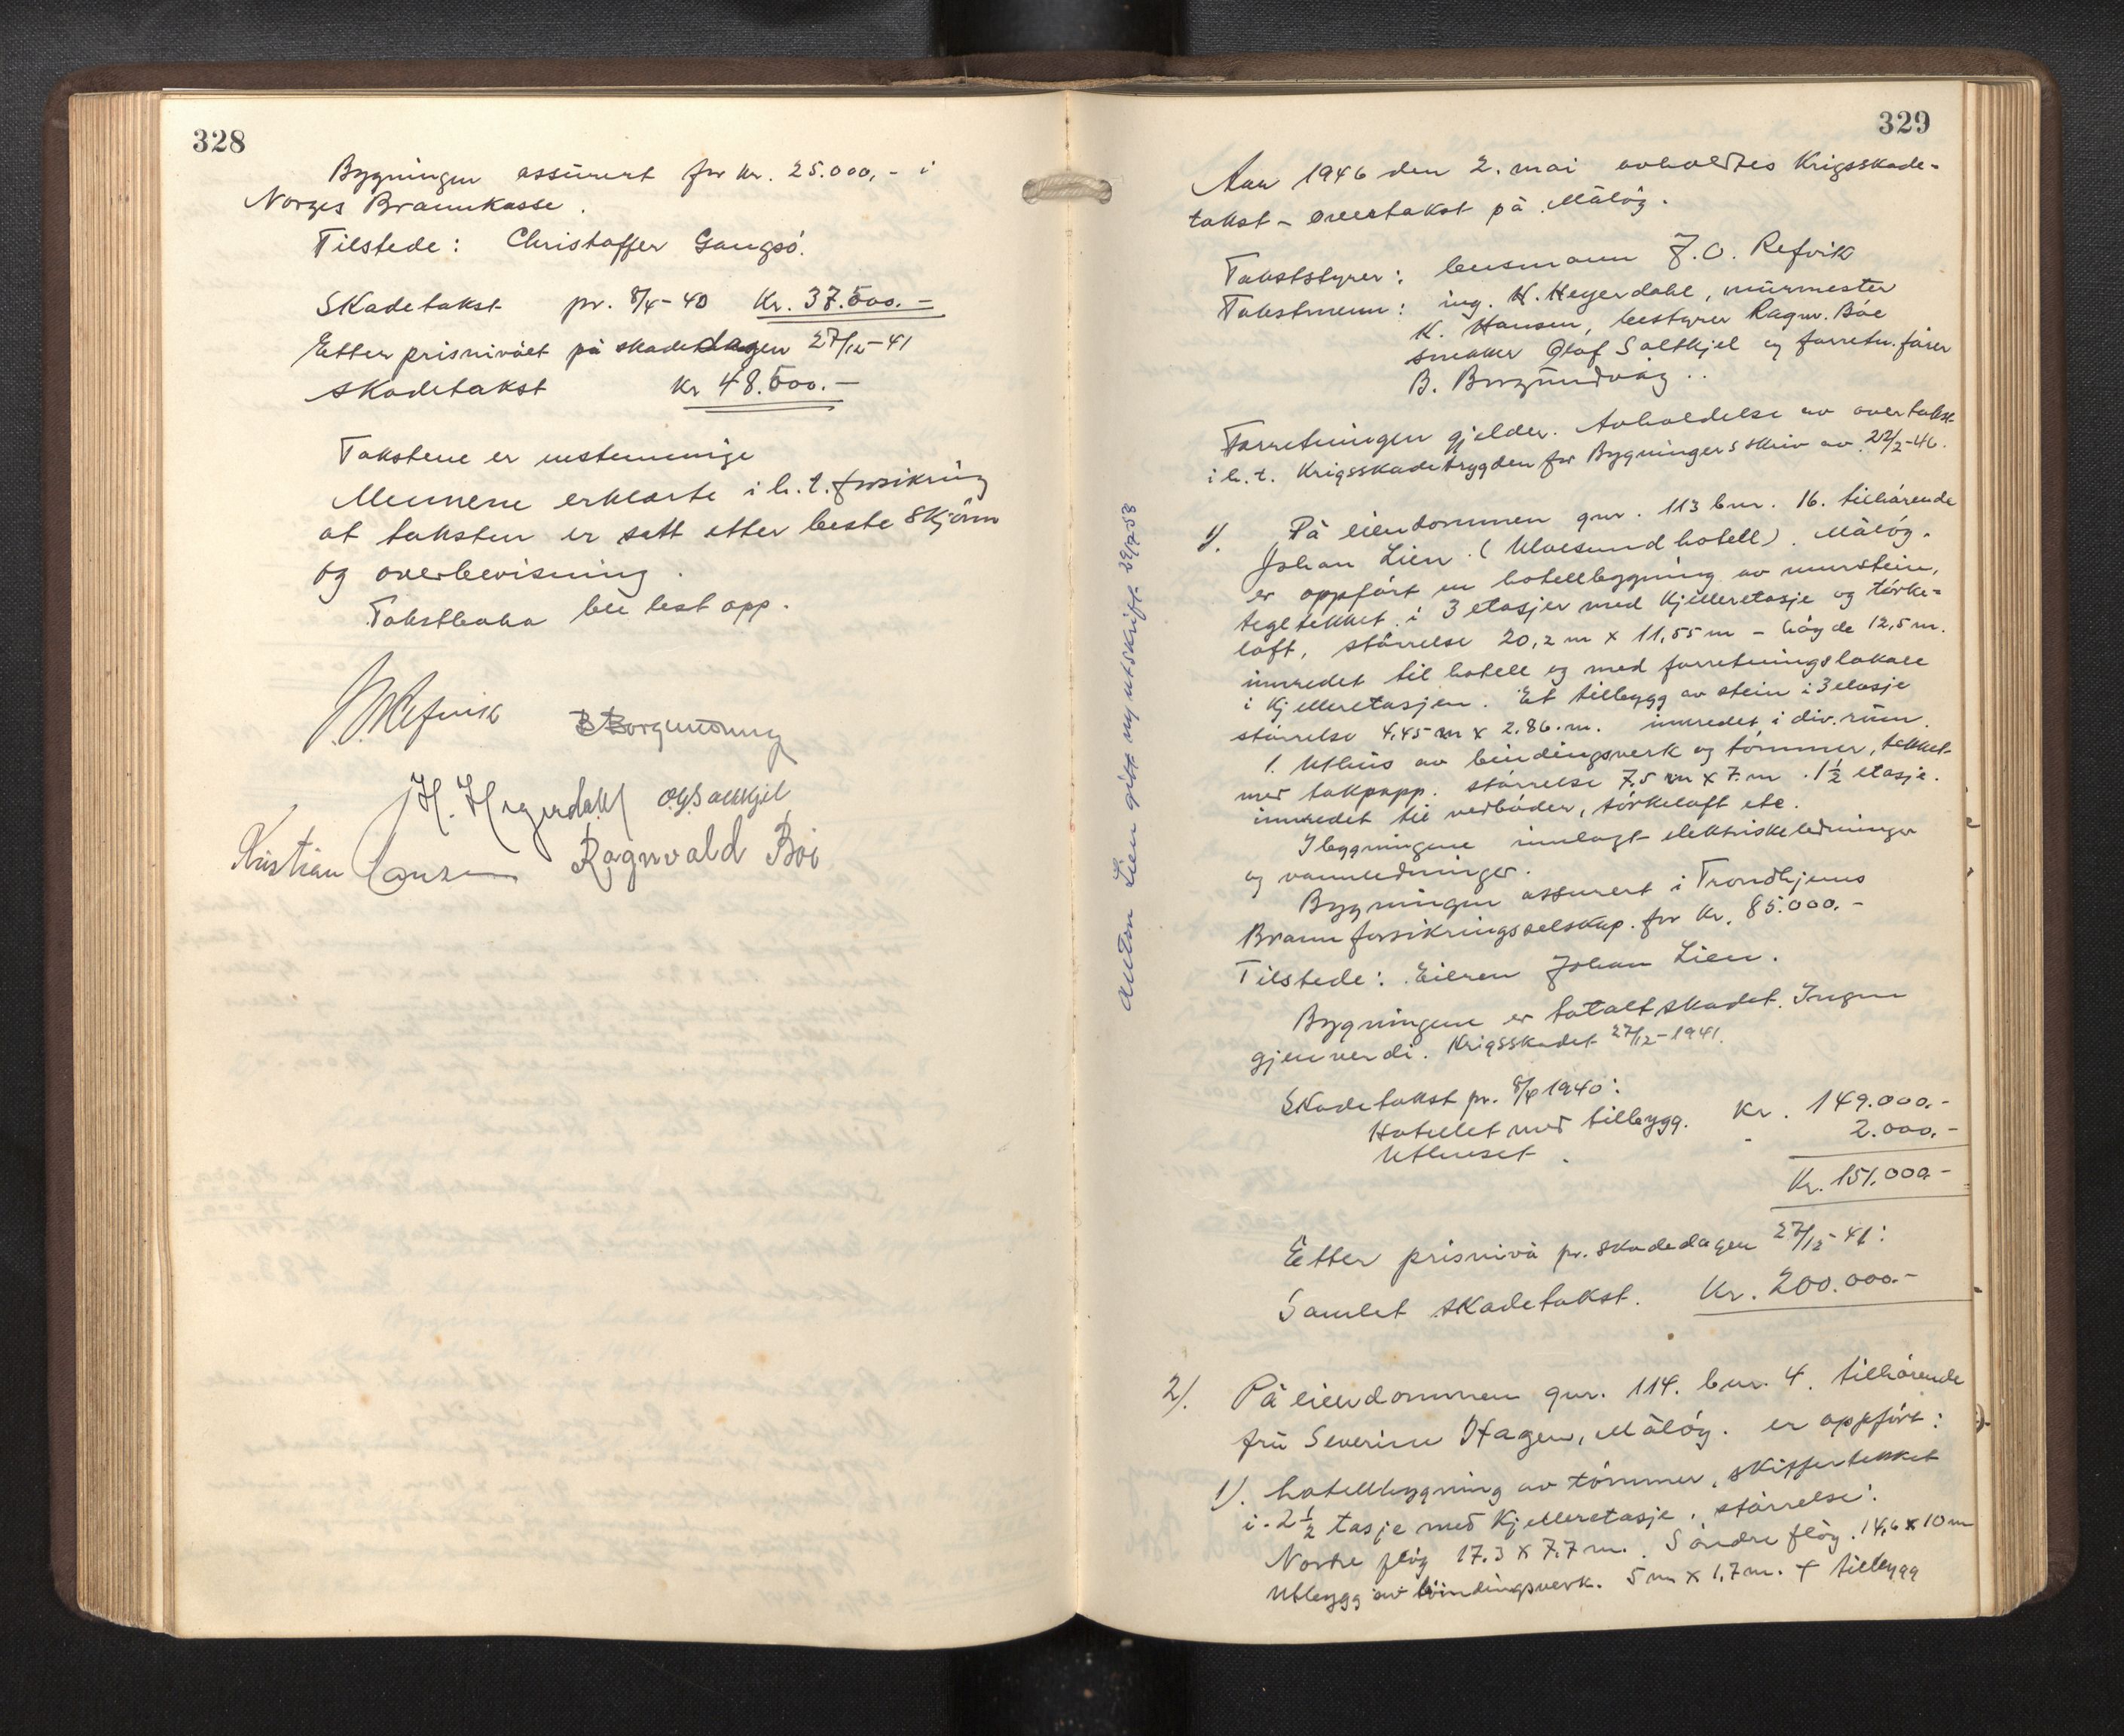 328
Bygningen assurert for kr. 25.000,- i
Norges Brannkasse.
Tilstede: Christoffer Gangsö.
Skadetakst pr. 8/4-40 Kr. 37.500.-
Etter prisnivået på skadedagen 27/12-41
skadetakst kr 48.500.-
Takstene er enstemmige
Mennene erklærte i h.t. forsikring
at taksten er satt etter beste skjönn
og overbevisning.
Takstboka ble lest opp.
J. Refvik B Borgundvåg
H. Heyerdahl
Kristian Hansen Ragnvald Böe
329
Aar 1946 den 2. mai avholdtes Krigsskade-
takst - overtakst på Målöy.
Takststyrer: lensmann J.O. Refvik
Takstmenn: ing. H. Heyerdahl, murmester
K. Hansen, bestyrer Ragnv. Böe
snekker Olaf Saltkjel og forretn.förer
B. Borgundvåg..
Forretningen gjelder. Avholdelse av overtakst
i h.t. Krigsskadetrygden for Bygningers skriv av 22/2-46.
1). På eiendommen gnr. 113 bnr. 16. tilhörende
Johan Lien (Ulvesund hotell). Målöy.
er oppfört en hotellbygning av murstein,
tegltekket i 3 etasjer med kjelleretasje og törke-
loft, störrelse 20,2 m x 11,55 m - höyde 12,5 m.
innredet til hotell og med forretningslokale
i kjelleretasjen. Et tilbygg av stein i 3 etasje
störrelse 4,45 m x 2.86. m. innredet i div. rum.
1. Uthus av bindingsverk og tömmer, tekket
med takpapp. störrelse 7,5 m x 7. m. 1 1/2 etasje.
innredet til vedboder, törkeloft etc.
I bygningene innlagt elektriske ledninger
og vannledninger.
Bygningen assurert i Trondhjems
Brannforsikringsselskap. for kr. 85.000.-
Tilstede: Eieren Johan Lien.
Bygningene er totalt skadet. Ingen
gjenverdi. Krigsskadet 27/12-1941.
Skadetakst pr. 8/4 1940:
Hotellet med tilbygg. Kr. 149.000.-
Uthuset. - 2.000.-
Kr. 151.000-
Etter prisnivå pr. skadedagen 27/12-41:
Samlet skadetakst. Kr. 200.000.-
2). På eiendommen gnr. 114. bnr. 4. tilhörende
fru Severine Hagen, Målöy. er oppfört:
1). hotellbygning av tömmer, skiffertekket
i 2 1/2 tasje med kjelleretasje, störrelse:
Nordre flöy 17.3 x 7,7 m. Söndre flöy 14,6 x 10 m
utbygg av bindingsverk. 5 m x 1,7 m. + tilbygg
Anton Lien gitt ny utskrift